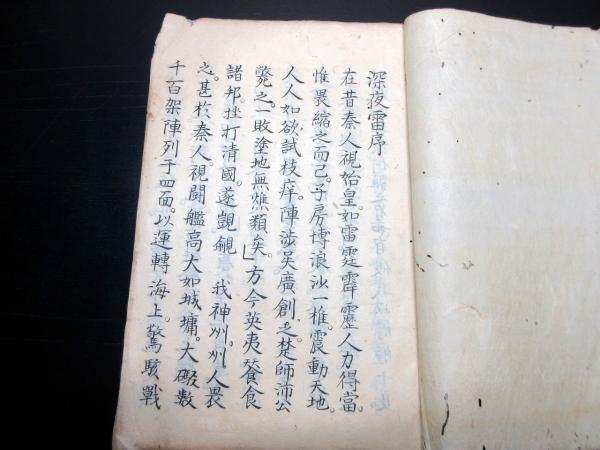 深夜雷序
在昔秦人視始皇。如雷霆霹靂人力得當。
惟畏縮之而已。子房博浪沙一椎。震動天地。
人人如欲試枝痒。陣渉吴廣創之。楚師沛公
斃之。一敗塗地無燋類矣。」方今英夷餐食
諸邦。挫打清國。遂覬覦 我神州。州人畏
之。甚於秦人。視闘艦高大如城墉。大礟数
千百架陣列于四面。以運轉海上。驚駭戰